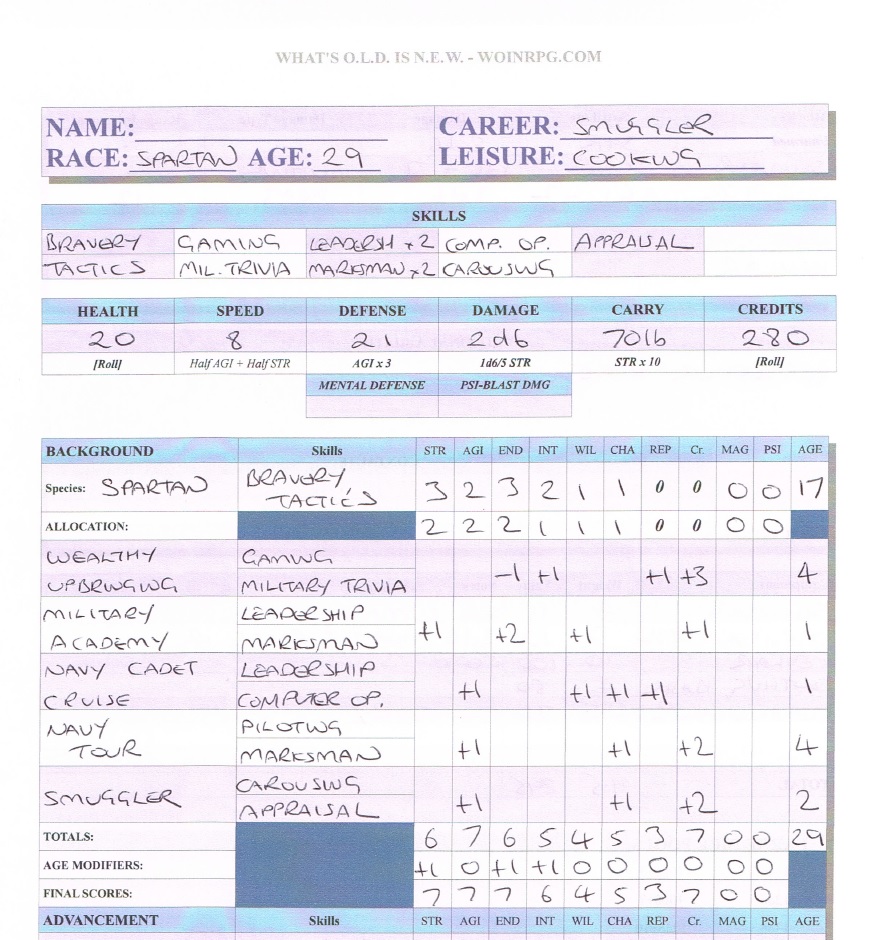 WHAT'S O.L.D. IS N.E.W. - WOINRPG.COM
NAME: CAREER: SMUGGLER
RACE: SPARTAN AGE: 29 LEISURE: COOKING
SKILLS
BRAVERY GAMING LEADERSH x2 COMP. OP. APPRAISAL
TACTICS MIL. TRIVIA MARKSMAN x2 CAROUSING
HEALTH SPEED DEFENSE DAMAGE CARRY CREDITS
20 8 21 2d6 70lb 280
[Roll] Half AGI + Half STR AGI x 3 1d6/5 STR STR x 10 [Roll]
MENTAL DEFENSE PSI-BLAST DMG
BACKGROUND Skills STR AGI END INT WIL CHA REP Cr. MAG PSI AGE
Species: SPARTAN BRAVERY, TACTICS 3 2 3 2 1 1 0 0 0 0 17
ALLOCATION: 2 2 2 1 1 1 0 0 0 0
WEALTHY GAMING
UPBRINGING MILITARY TRIVIA -1 +1 +1 +3 4
MILITARY LEADERSHIP
ACADEMY MARKSMAN +1 +2 +1 +1 1
NAVY CADET LEADERSHIP
CRUISE COMPUTER OP. +1 +1 +1 +1 1
NAVY PILOTING
TOUR MARKSMAN +1 +1 +2 4
SMUGGLER CAROUSING
APPRAISAL +1 +1 +2 2
TOTALS: 6 7 6 5 4 5 3 7 0 0 29
AGE MODIFIERS: +1 0 +1 +1 0 0 0 0 0 0
FINAL SCORES: 7 7 7 6 4 5 3 7 0 0
ADVANCEMENT Skills STR AGI END INT WIL CHA REP Cr. MAG PSI AGE